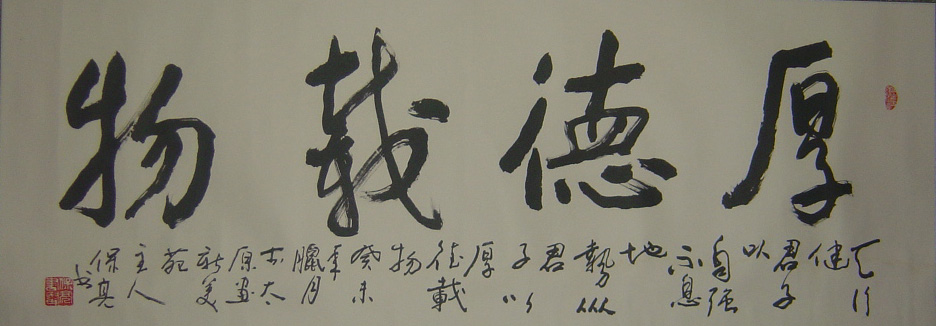 厚德載物
天行
健
君子
以
自強
不息
地
勢坤
君
子以
厚
德載
物
癸未
年
臘月
於太
原画
新美
苑
主人
保亮